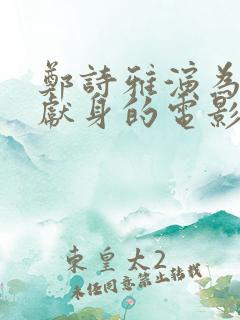 鄭詩雅演為
獻身的電影
東皇太2
未經同意禁止轉載